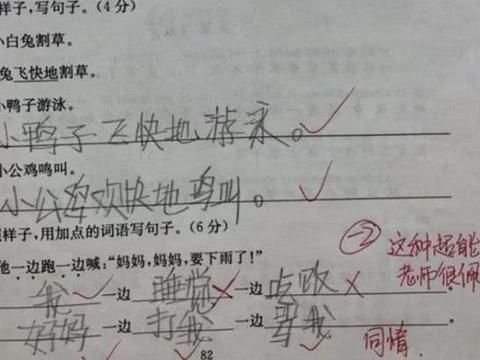 样子,写句子。(4分)
小白兔割草。
兔飞快地割草。
小鸭子游泳。
小鸭子飞快地游泳。
小公鸡鸣叫。
小公鸡欢快地鸣叫。
样子,用加点的词语写句子。(6分)
他一边跑一边喊:“妈妈,妈妈,要下雨了!”
-2 这种超自能
老师很佩
我一边睡觉一边吃饭
妈妈一边打我一边骂我。
同情
82